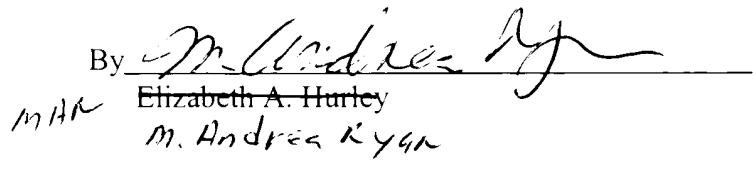 By M. Andrea Ryan
Elizabeth A. Hurley
MAR
M. Andrea Ryan